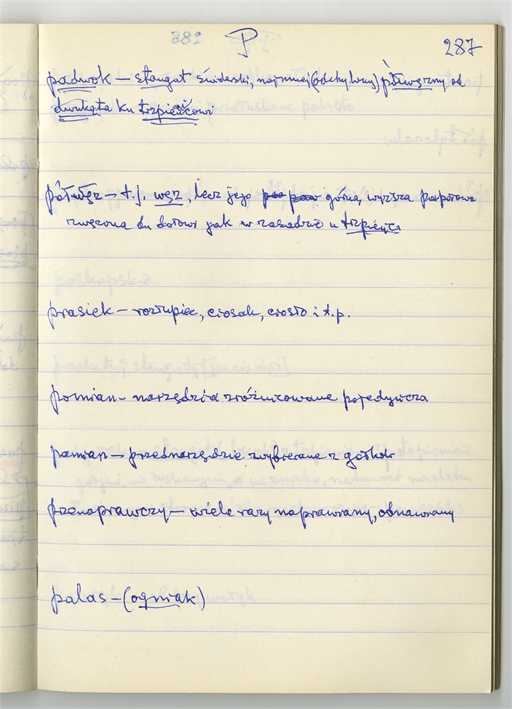 P
287
padwok – sługat świderski, najmniej (odchylony) półwężny od
dwukąta ku trzpieńcowi
półwęz – t.j. węz, lecz jego górna, wyższa połowa
zwężona ku dołowi jak w zasadzie u trzpieńca
prasiek – rozłupiec, ciosak, ciosło i t.p.
pomian – narzędzia zróżnicowane pojedyńcza
pamian – przednarzędzie wybierane z
przenaprawczy – wiele razy naprawiany, odnawiany
palas – (ogniak)